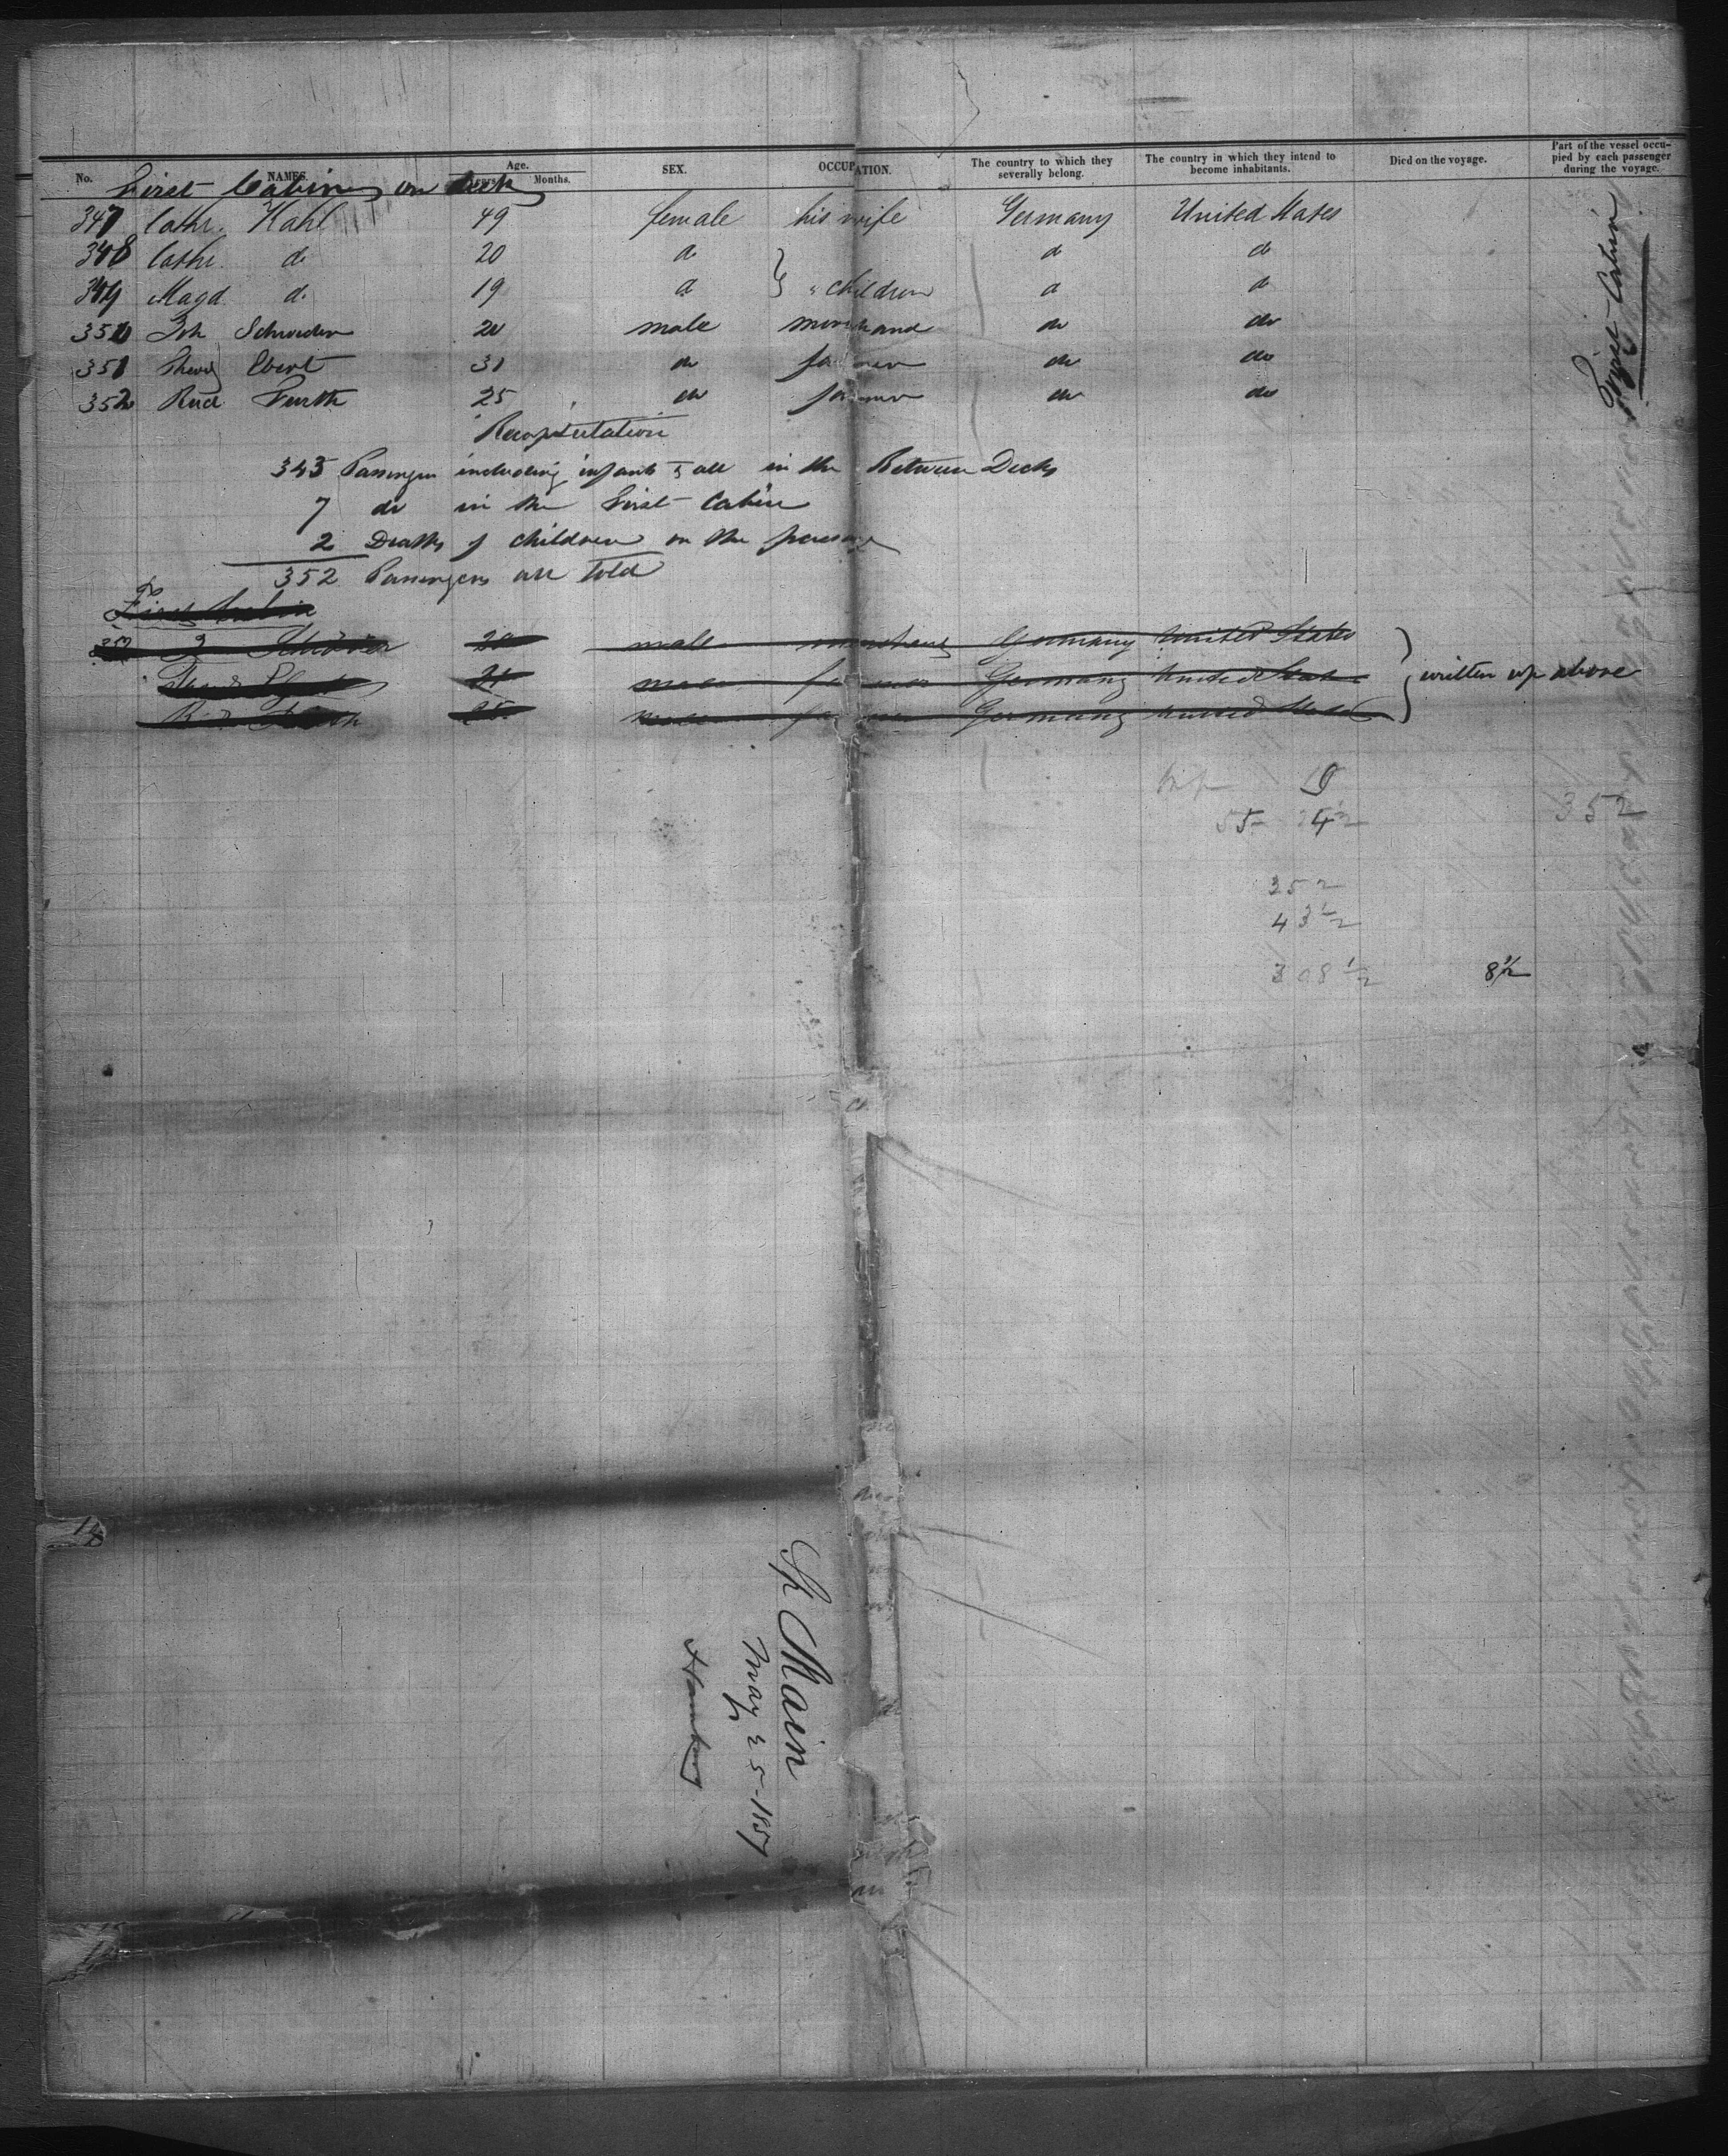 No. NAMES. Age. Years. Months. SEX. OCCUPATION. The country to which they severally belong. The country in which they intend to become inhabitants. Died on the voyage. Part of the vessel occupied by each passenger during the voyage.
First Cabin on deck
347 Cathr. Kahl 49 female his wife Germany United States
348 Cathr. do 20 do do do
349 Magd. do 19 do children do do
350 Joh Schroeder 20 male merchand do do
351 Ebert 31 do farmer do do
352 Rud Furth 25 do farmer do do
First Cabin
Recapitulation
343 Passengers including infants & all in the Between Decks
7 do in the First Cabin
2 Deaths of children on the passage
352 Passengers all told
First Cabin
352 J Schröder 20 male merchant Germany United States
31 male farmer Germany United States
25 male farmer Germany United States
written up above
352
55 24½
352
43½
308½ 8½
Main
May 25-1857
Hamburg